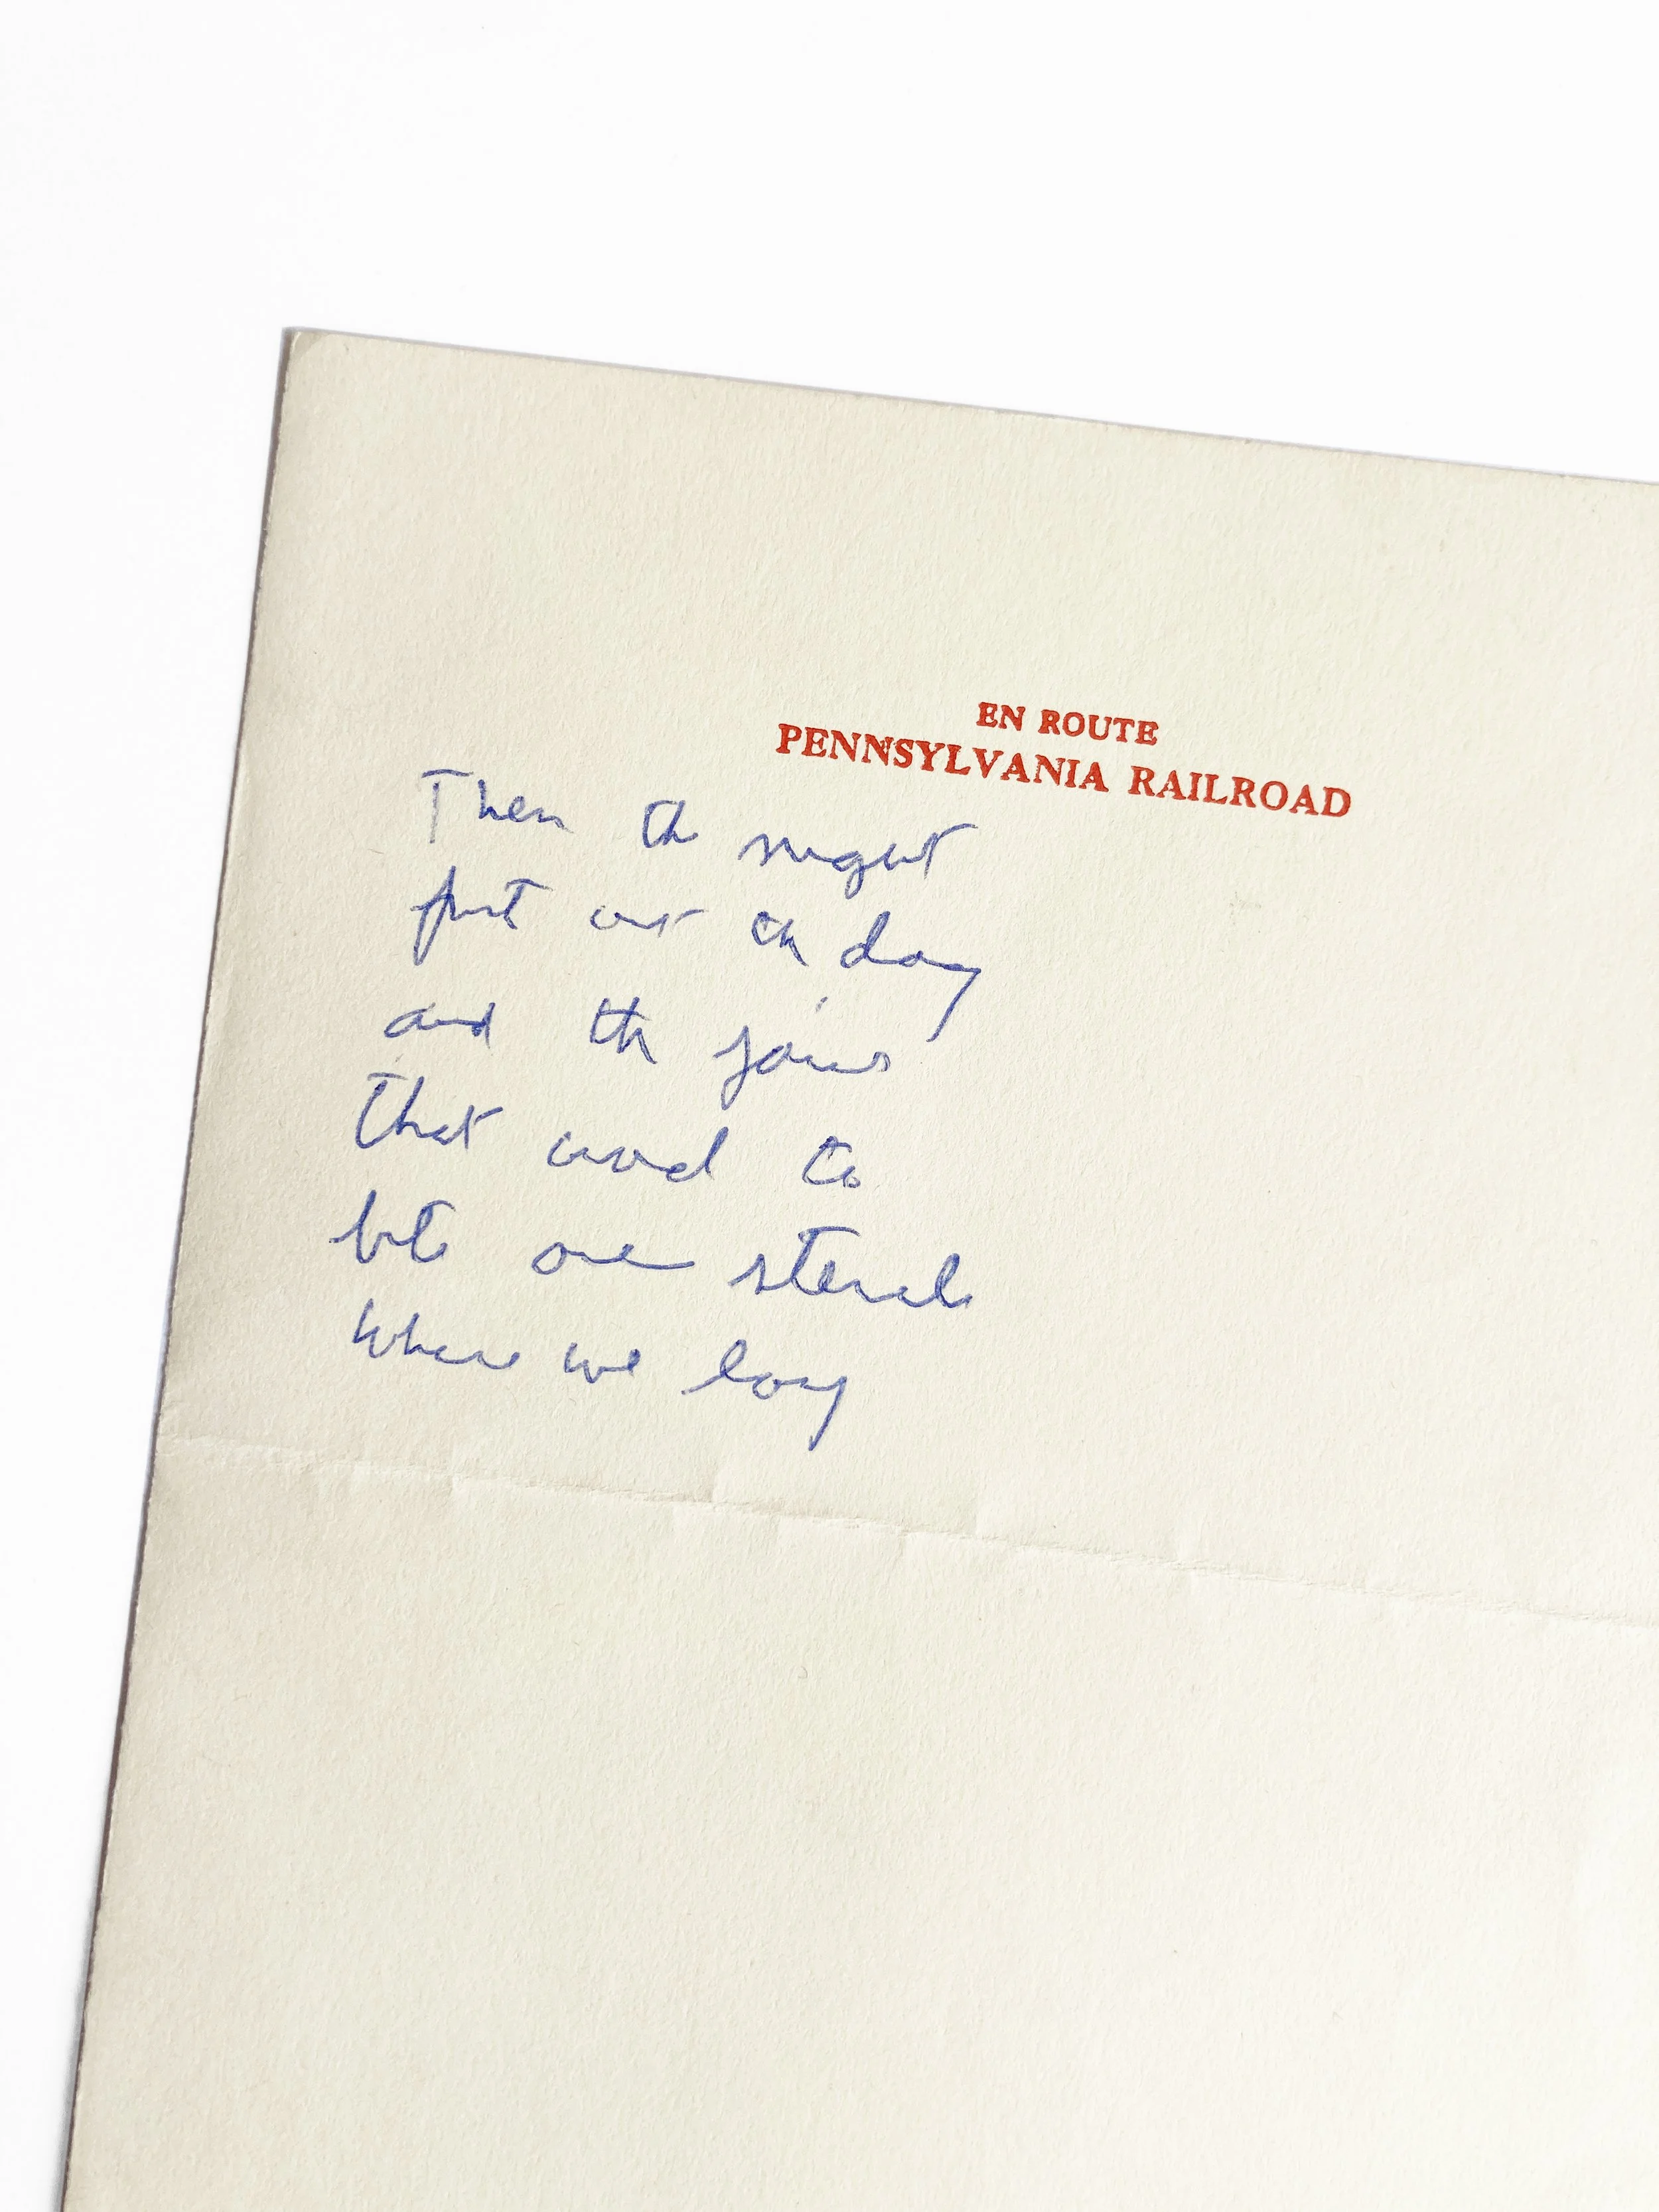 EN ROUTE
PENNSYLVANIA RAILROAD
Then th night
put out th day
and th
that used to
bite our
Where we lay